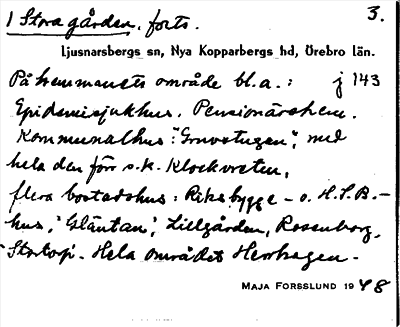 1 Stora gården, forts. 3.
Ljusnarsbergs sn, Nya Kopparbergs hd, Örebro län.
På hemmanets område bl.a.: j 143
Epidemisjukhus. Pensionärshem.
Kommunalhus: "Gruvstugan", med
hela den förr s.k. Klockvreten,
flera bostadshus: Riksbygge- o. H.S.B.-
hus, "Gläntan", Lillgården, Rosenborg,
"Stortorp". Hela området Herrhagen.
MAJA FORSSLUND 1948